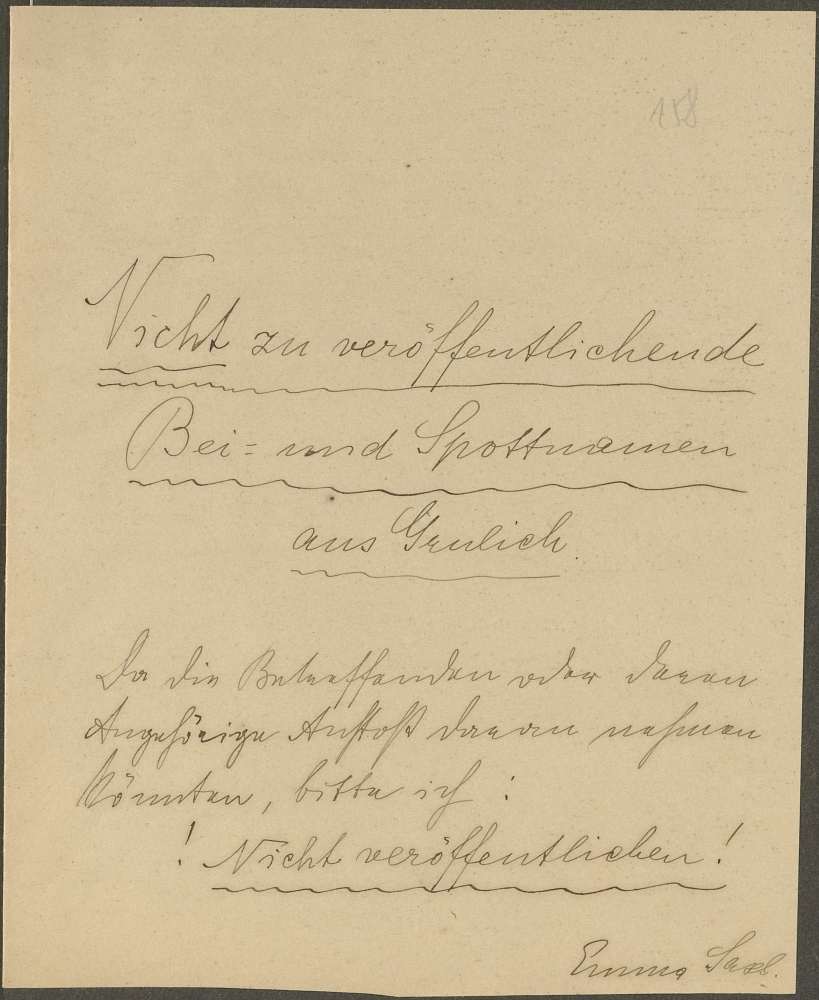 158
Nicht zu veröffentlichende
Bei= und Spottnamen
aus Grulich.
Da die Betreffenden oder deren
Angehörige Anstoß daran nehmen
könnten, bitte ich :
! Nicht veröffentlichen !
Emma Saxl.